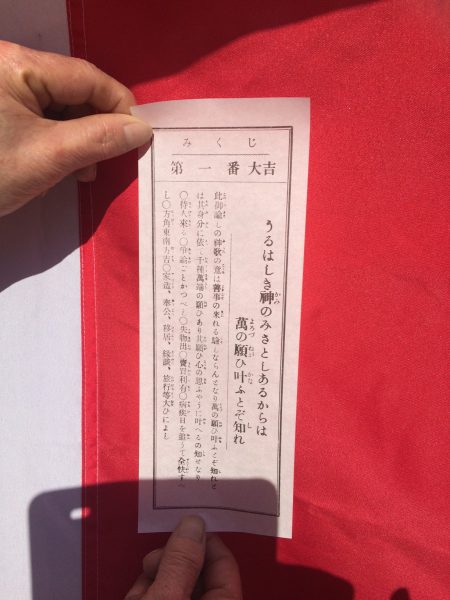 みくじ
第一番大吉
うるはしき神のみさとしあるからは
萬の願ひ叶ふとぞ知れ
此御諭しの神歌の意は善事の来れる験しならんとなり萬の願ひ叶ふとぞ知れと
は其身分に依て千種萬端の願ひあり其願ひ心の思ふやうに叶へるの知せなり
○待人来る○爭論ごとかつべし○失物出○賣買利有○病疾日を追うて全快すべ
し○方角東南方吉○家造、奉公、移居、縁談、旅行等大ひによし